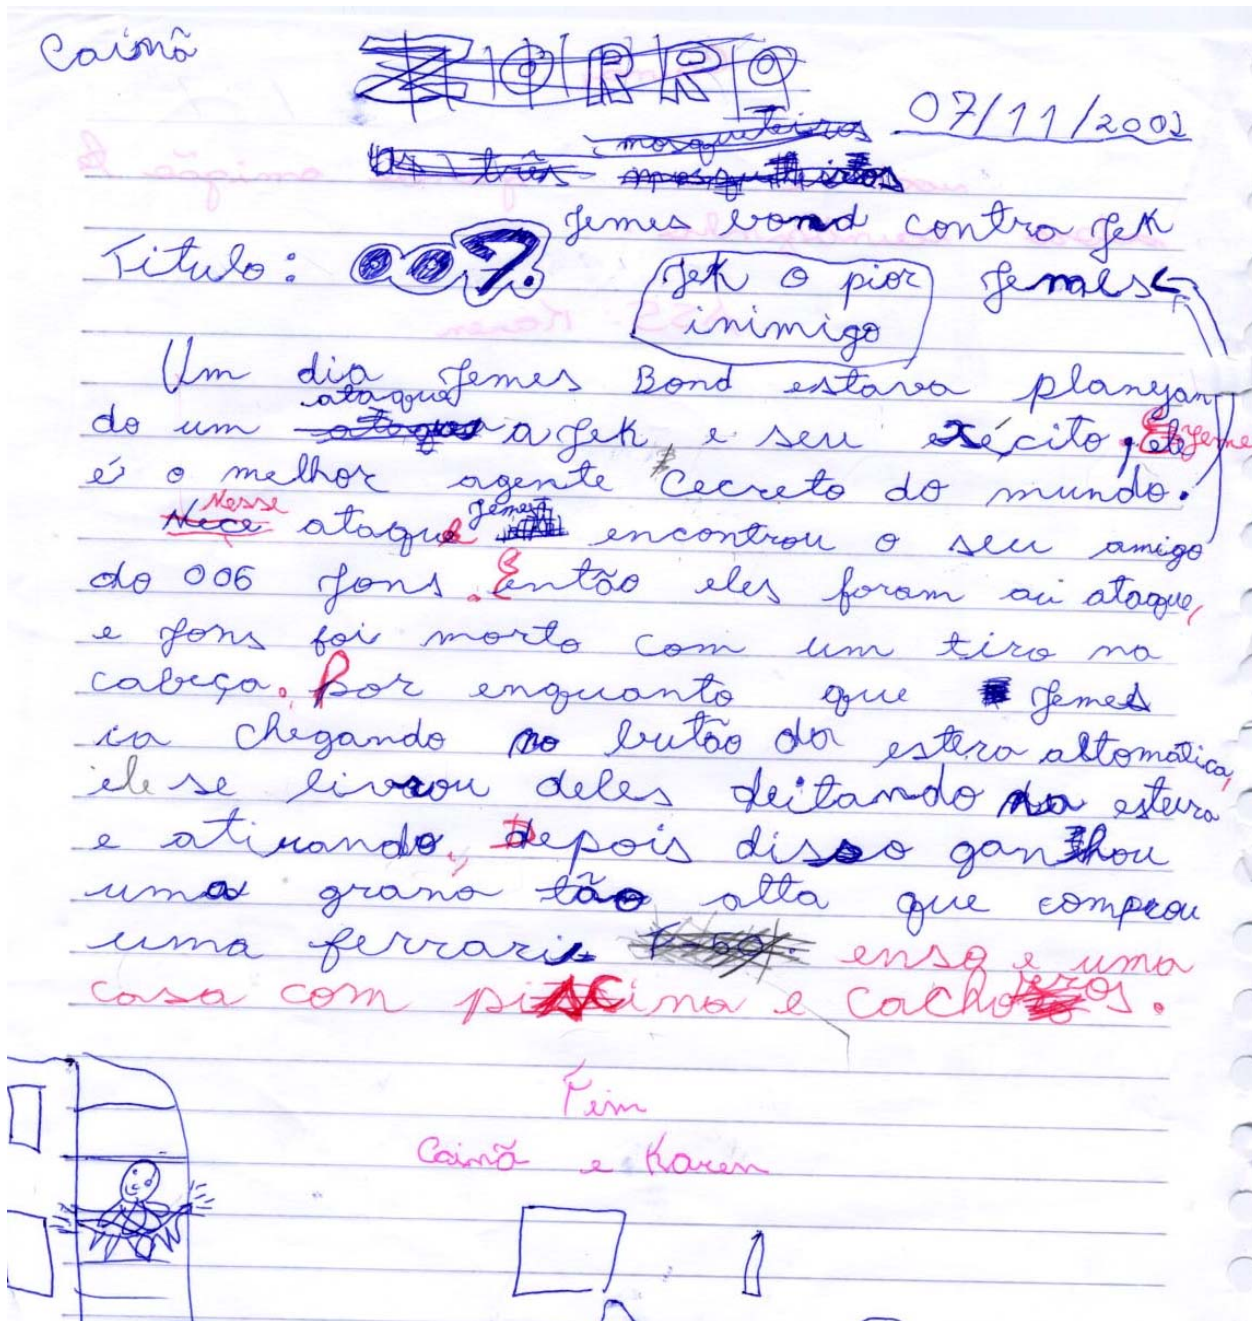 Cainã
ZORRO
07/11/2002
mosqueteiros
Os três mosqueteiros
Jemes bond contra Jek
Titulo: 007.
Jek o pior Jemaes
inimigo
Um dia Jemes Bond estava planejan
ataque
do um a Jek e seu exécito, ele Jemes
é o melhor agente Cecreto do mundo.
Nesse Jemes
Neçe ataque encontrou o seu amigo
do 006 Jons. Então eles foram au ataque,
e Jons foi morto com um tiro na
cabeça. Por enquanto que Jemes
ia chegando no butão da estera altomática,
ele se livrou deles deitando na esteira
e atirando. Depois disso ganhou
uma grana tão alta que comprou
uma ferrari enso e uma
casa com piscina e cachorros.
Fim
Cainã e Karen